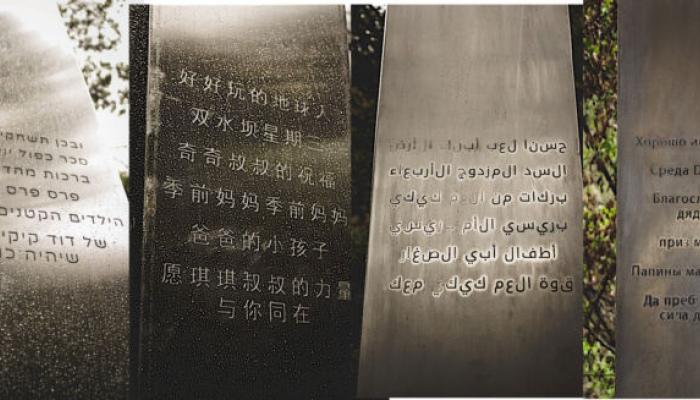 ובכן תשחקי
סכר כפול יום
ברכות מהדוד
פרס פרס
הילדים הקטנים
של דוד קיקי
שיהיה כוח
好好玩的地球人
双水坝星期三
奇奇叔叔的祝福
季前妈妈季前妈妈
爸爸的小孩子
愿琪琪叔叔的力量
与你同在
حسنا لعب أبرك الأرض
السد المزدوج الأربعاء
بركات من العم كيكي
بريسي الأم بريسي
أطفال أبي الصغار
قوة العم كيكي معك
Хорошо
Среда
Благосл
дяд
приз м
Папины ма
Да преб
сича д